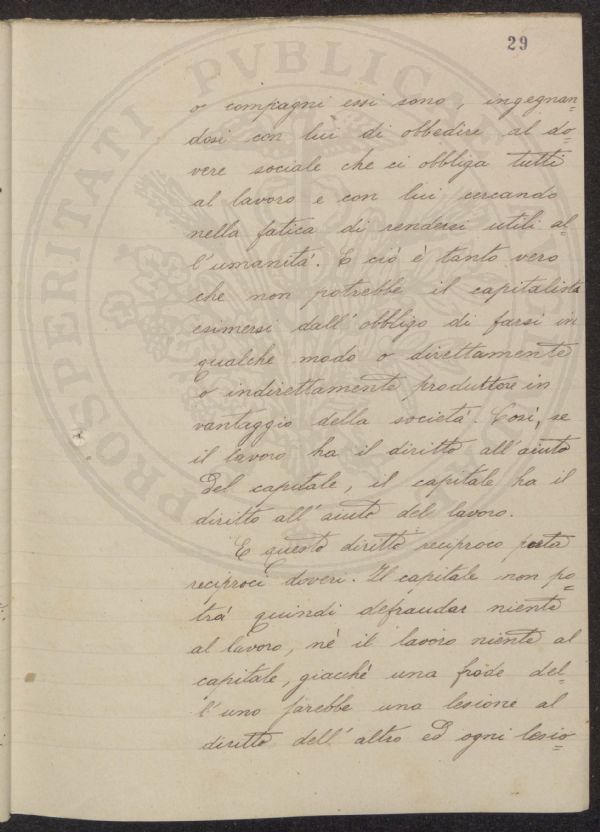 29
o compagni essi sono, ingegnan=
dosi con lui di obbedire al do=
vere sociale che ci obbliga tutti
al lavoro e con lui cercando
nella fatica di rendersi utili al=
l'umanità. E ciò è tanto vero
che non potrebbe il capitalista
esimersi dall'obbligo di farsi in
qualche modo o direttamente
o indirettamente produttore in
vantaggio della società. Così, se
il lavoro ha il diritto all'aiuto
del capitale, il capitale ha il
diritto all'aiuto del lavoro.
E questo diritto reciproco porta
reciproci doveri. Il capitale non po=
trà quindi defraudar niente
al lavoro, nè il lavoro niente al
capitale, giacchè una frode del=
l'uno farebbe una lesione al
diritto dell'altro ed ogni lesio=
PROSPERITATI PVBLICAE